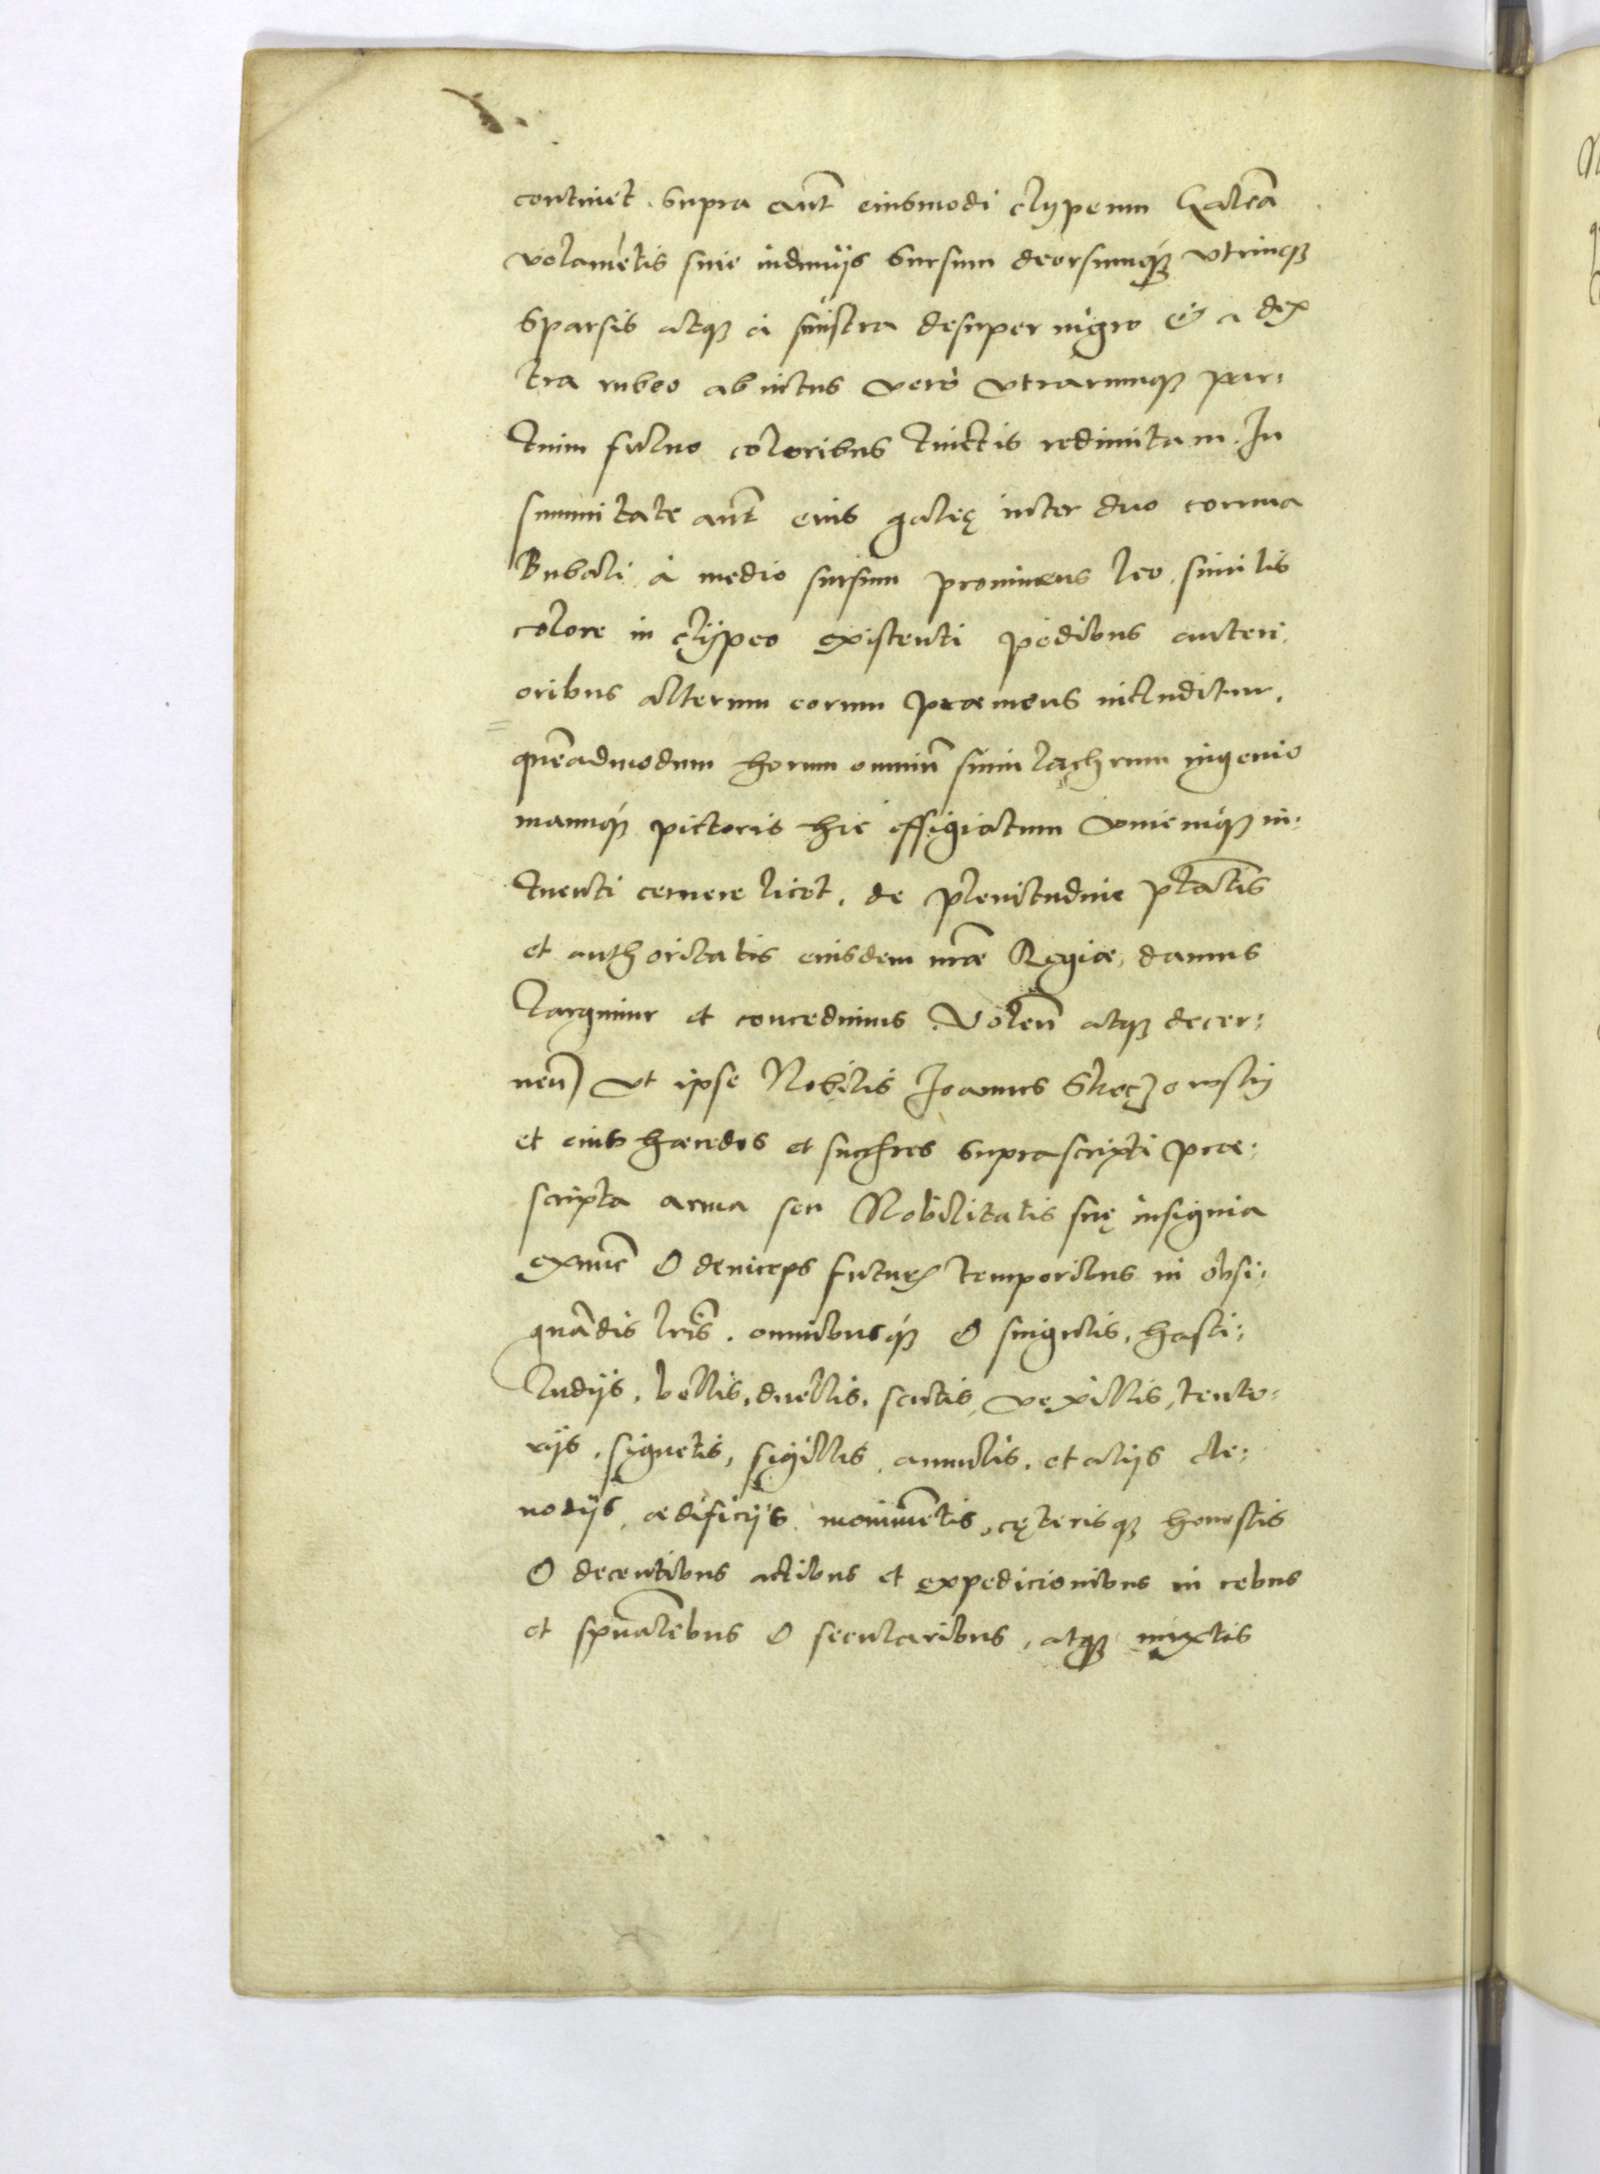 continet. Supra aut̃ eiusmodi clypeum Galeã
volamẽtis siue induuijs sursum deorsumq́ꝫ vtrinqꝫ
sparsis atqꝫ à sinistra desuper nigro & a dex
tra rubeo ab intus verò vtrarumqꝫ par:
tium fuluo coloribus tinctis redimitam. In
summitate aut̃ eius galeę inter duo cornua
Bubali à medio sursum prominens leo similis
colore in clÿpeo existenti pedibus anteri
oribus alterum eorum praemens includitur.
quẽadmodum horum omniũ simulachrum ingenio
manuq́ꝫ pictoris hic effigiatum vnicuiq́ꝫ in:
tuenti cernere licet. de plenitudine ptatis̃
et authoritatis eiusdem nrae Regiae, damus
largimur et concedimus. Volen̄ atqꝫ decer:
nen̄) vt ipse Nobilis Joannes Skeczowsky
et eius haeredes et succres suprascripti prae:
scripta arma seu Nobilitatis suę insignia
exnũc & deinceps futuris temporibus in obsi:
gnãdis lris̃. omnibusq́ꝫ & singulis, hasti:
ludijs, bellis, duellis, scutis, vexillis, tento:
rijs, signetis, sigillis, annulis, et alijs cle:
nodijs, aedificijs monumẽtis, cęterisqꝫ honestis
& decentibus actibus et expedicionibus in rebus
et spũalibus & secularibus, atqꝫ mixtis